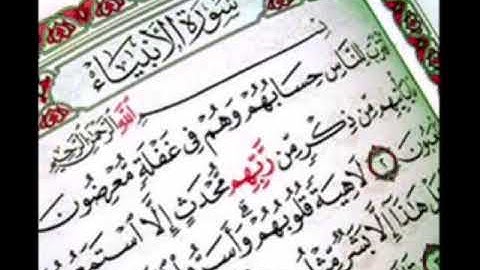 سُورَةُ الْأَنْبِيَاءِ
بِسْمِ اللَّهِ الرَّحْمَٰنِ الرَّحِيمِ
لِلنَّاسِ حِسَابُهُمْ وَهُمْ فِي غَفْلَةٍ مُّعْرِضُونَ
يَأْتِيهِم مِّن ذِكْرٍ مِّن رَّبِّهِم مُّحْدَثٍ إِلَّا
٢ لَاهِيَةً قُلُوبُهُمْ وَأَسَرُّوا
هَلْ هَٰذَا إِلَّا بَشَرٌ